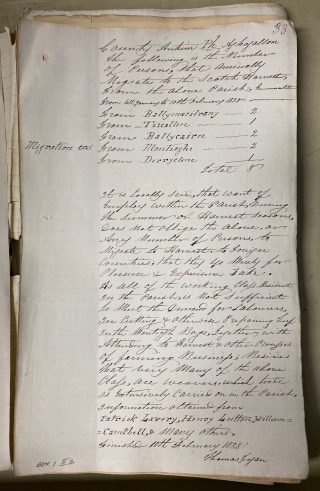 33
County Antrim Ph. Aghagallon
The following is the Number
of Persons, that Annually
Migrate to the Scotch Harvest,
from the above Parish,
from 1st January to 10th February 1838
From Ballymacilrany — 2
From — Tiscallen — 1
From — Ballycairn — 2
From — Montiaghs — 2
From — Derryclone — 1
Total 8
Migration &c
It is locally said, that want of
Employ within the Parish, during
the Summer or Harvest seasons,
Does not oblige the above, or
Any Number of Persons, to
Migrate to Harvest, to Foreign
Countries, that they Go Merely for
Pleasure & Experience Sake.
As all of the Working Class Resident
In the Parish, is not Sufficient
to Meet the Demand for Labourers,
In Cutting & otherwise Preparing turf
In the Montiagh Bogs, Together with
Attending to Harvest & other Process
of farming Business, Besides
that very Many of the above
Class, are weavers, which trade
is Extensively Carried on in the Parish.
Information obtained from
Patrick Lavery, Henry William
=Campbell, & Many others.
10th February 1838
Thomas Fagan
BOX 1 II 2